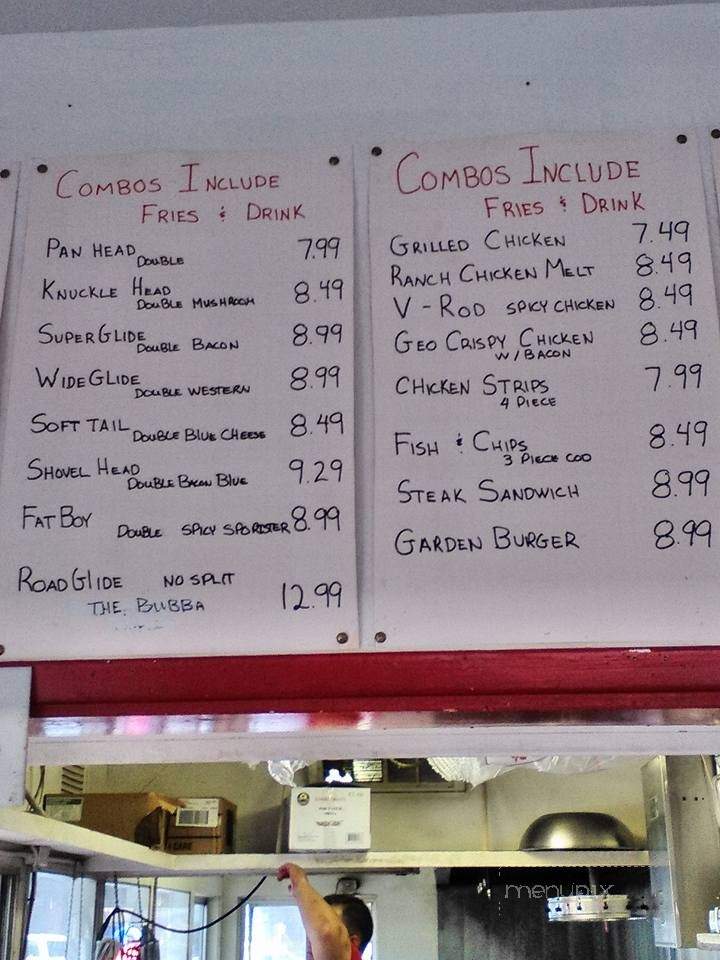 COMBOS INCLUDE
FRIES & DRINK
PAN HEAD DOUBLE 7.99
KNUCKLE HEAD DOUBLE MUSHROOM 8.49
SUPERGLIDE DOUBLE BACON 8.99
WIDEGLIDE DOUBLE WESTERN 8.99
SOFT TAIL DOUBLE BLUE CHEESE 8.49
SHOVEL HEAD DOUBLE BACON BLUE 9.29
FATBOY DOUBLE SPICY SPORTSTER 8.99
ROADGLIDE NO SPLIT
THE BUBBA 12.99
COMBOS INCLUDE
FRIES & DRINK
GRILLED CHICKEN 7.49
RANCH CHICKEN MELT 8.49
V-ROD SPICY CHICKEN 8.49
GEO CRISPY CHICKEN 8.49
W/BACON
CHICKEN STRIPS 7.99
4 PIECE
FISH & CHIPS 8.49
3 PIECE COD
STEAK SANDWICH 8.99
GARDEN BURGER 8.99
menupix